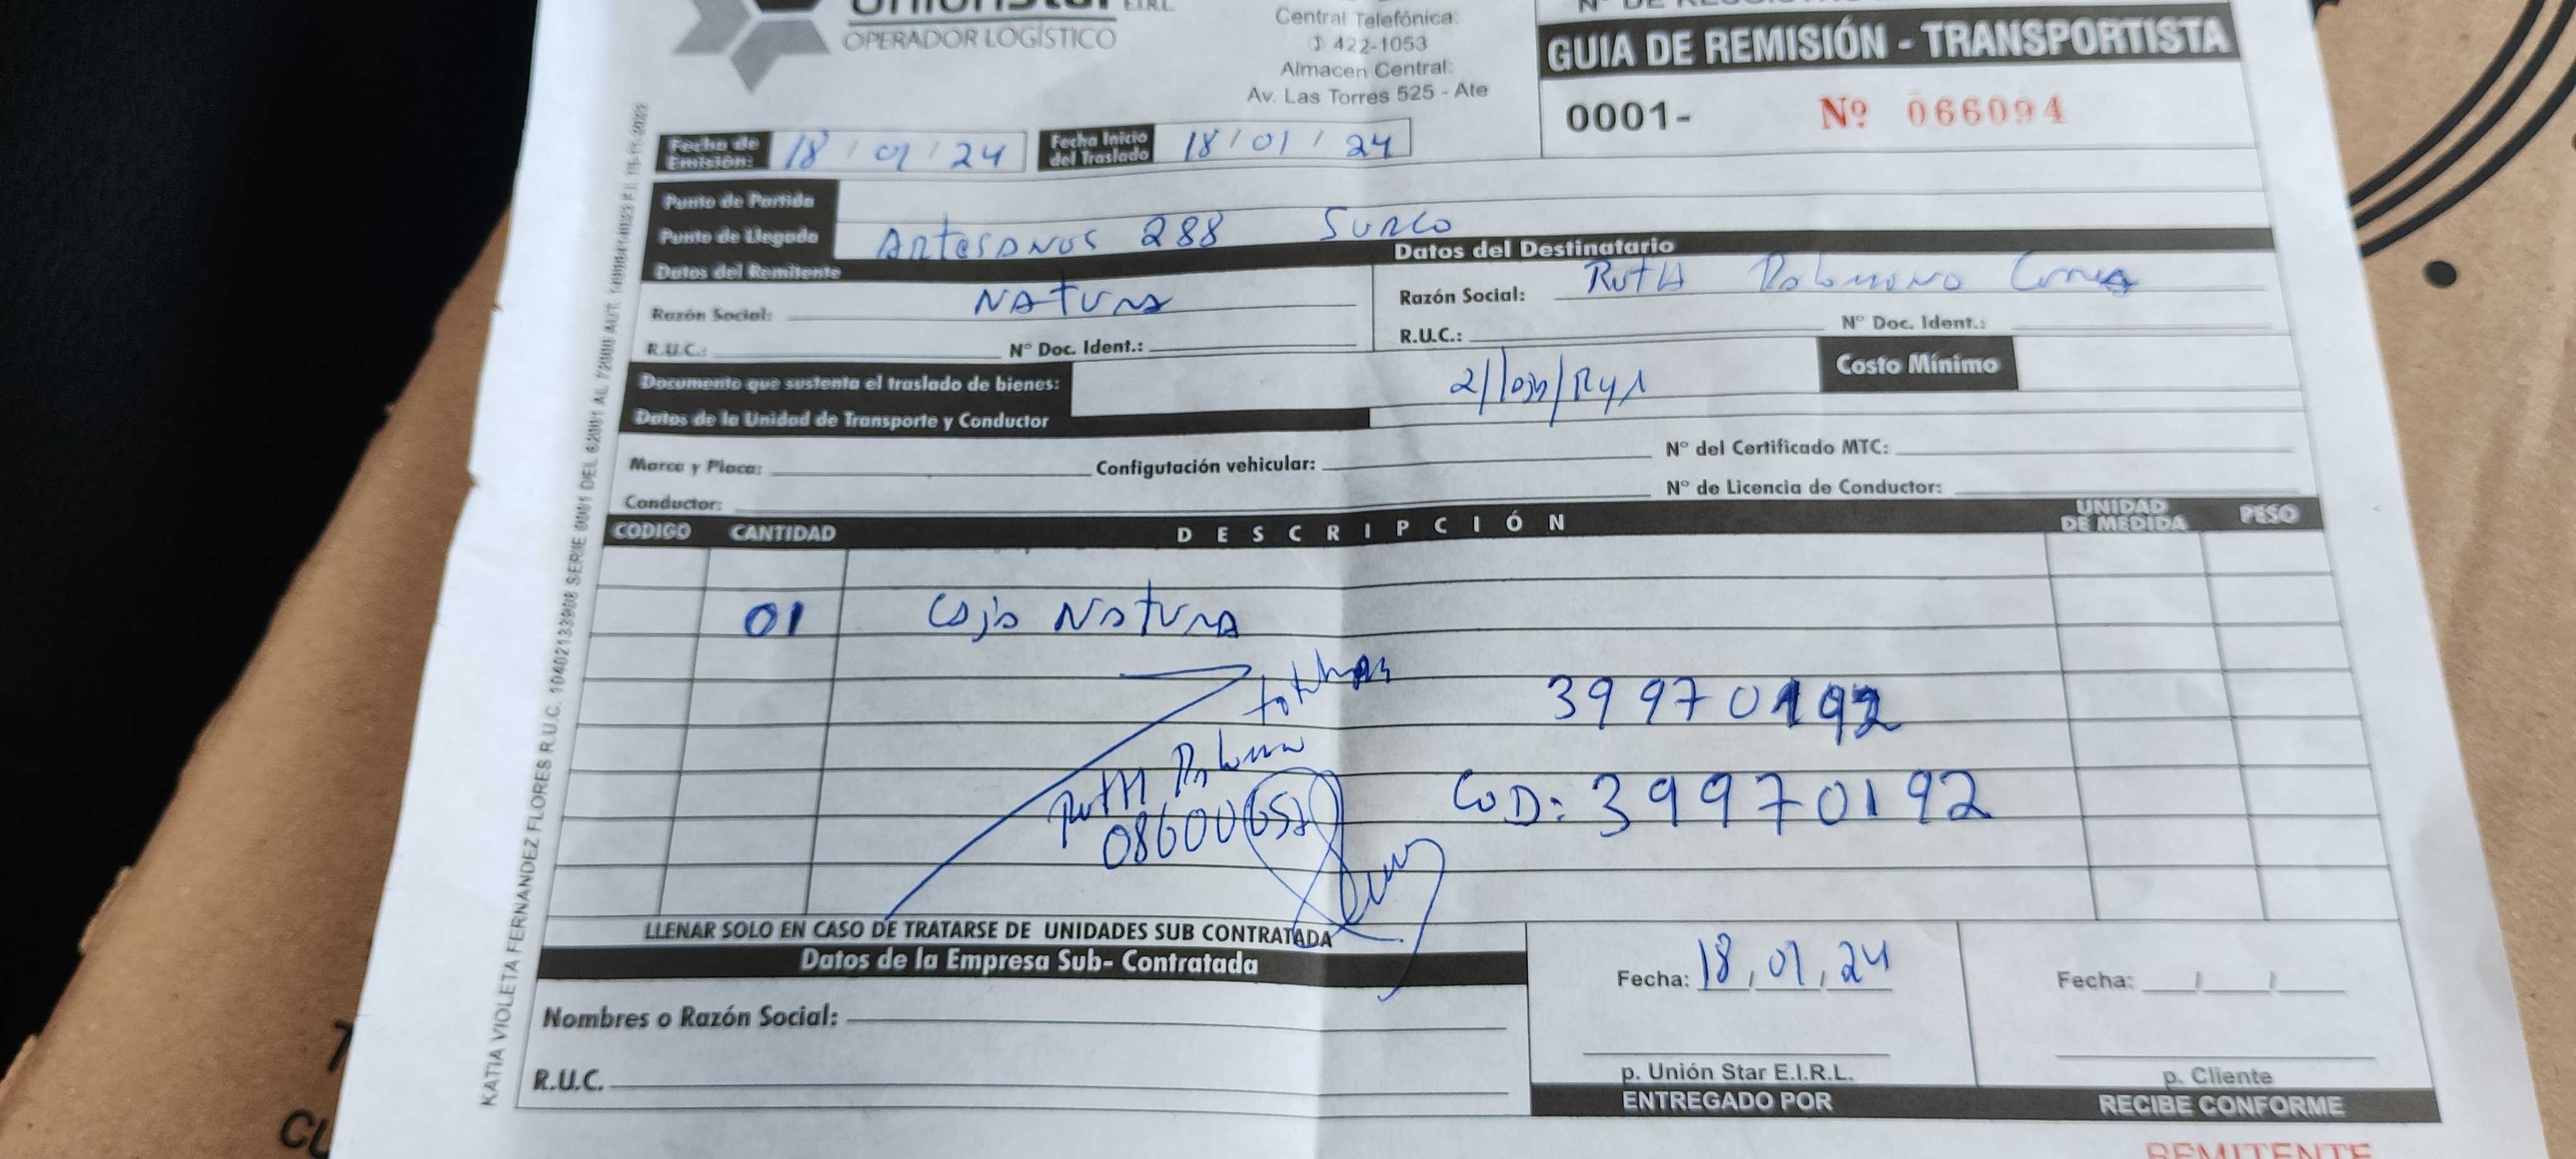 UnionStar E.I.R.L.
OPERADOR LOGÍSTICO
Central Telefónica:
422-1053
Almacen Central:
Av. Las Torres 525 - Ate
GUIA DE REMISIÓN - TRANSPORTISTA
0001- Nº 066094
Fecha de Emisión: 18 / 01 / 24
Fecha Inicio del Traslado 18 / 01 / 24
Punto de Partida
Punto de Llegada Artesanos 288 Surco
Datos del Remitente
Datos del Destinatario
Razón Social: NATURA
Razón Social: Ruth Palomino
R.U.C.: N° Doc. Ident.:
R.U.C.: N° Doc. Ident.:
Documento que sustenta el traslado de bienes:
Costo Mínimo
Datos de la Unidad de Transporte y Conductor
Marca y Placa: Configutación vehicular: N° del Certificado MTC:
Conductor: N° de Licencia de Conductor:
CODIGO CANTIDAD DESCRIPCIÓN UNIDAD DE MEDIDA PESO
01 Caja Natura
39970192
Ruth
COD: 39970192
LLENAR SOLO EN CASO DE TRATARSE DE UNIDADES SUB CONTRATADA
Datos de la Empresa Sub- Contratada
Nombres o Razón Social:
R.U.C.
Fecha: 18, 01, 24
p. Unión Star E.I.R.L.
ENTREGADO POR
Fecha: / /
p. Cliente
RECIBE CONFORME
REMITENTE
KATIA VIOLETA FERNANDEZ FLORES R.U.C. 10402133908 SERIE 0001 DEL 62001 AL 72000